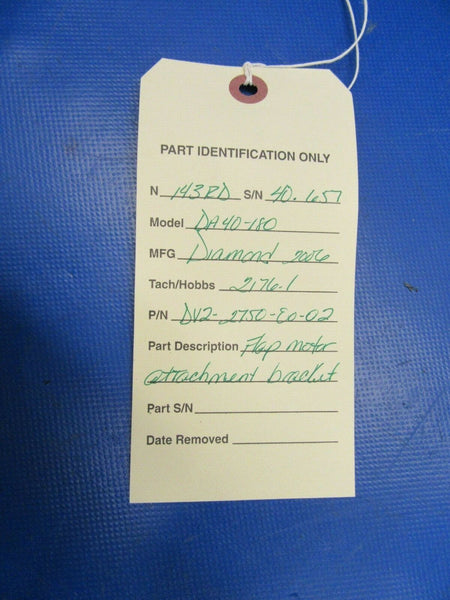 PART IDENTIFICATION ONLY
N 143ED S/N 40.657
Model DA40-180
MFG Diamond 2006
Tach/Hobbs 2176.1
P/N DV2-2750-E0-02
Part Description Flap motor
attachment bracket
Part S/N
Date Removed